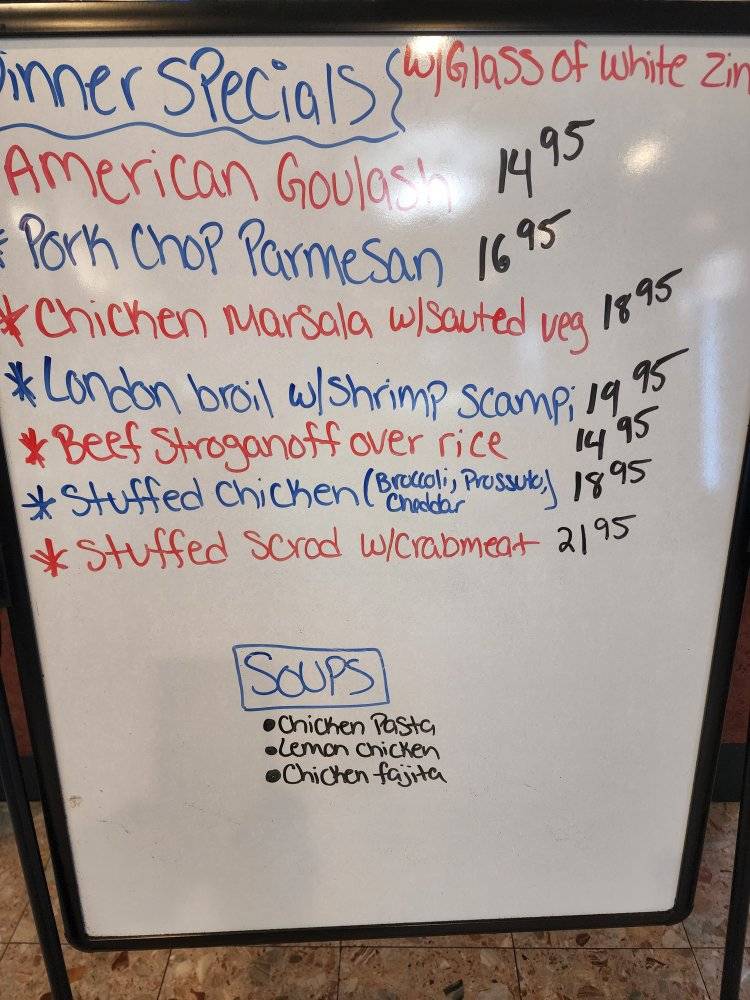 Dinner Specials { w/Glass of white Zin
American Goulash 14 95
* Pork Chop Parmesan 16 95
* Chicken Marsala w/sauted veg 18 95
* London broil w/shrimp scampi 19 95
* Beef Stroganoff over rice 14 95
* Stuffed Chicken (Broccoli, Prossuto, Cheddar) 18 95
* Stuffed Scrod w/crabmeat 21 95
Soups
• Chicken Pasta
• Lemon Chicken
• Chicken fajita